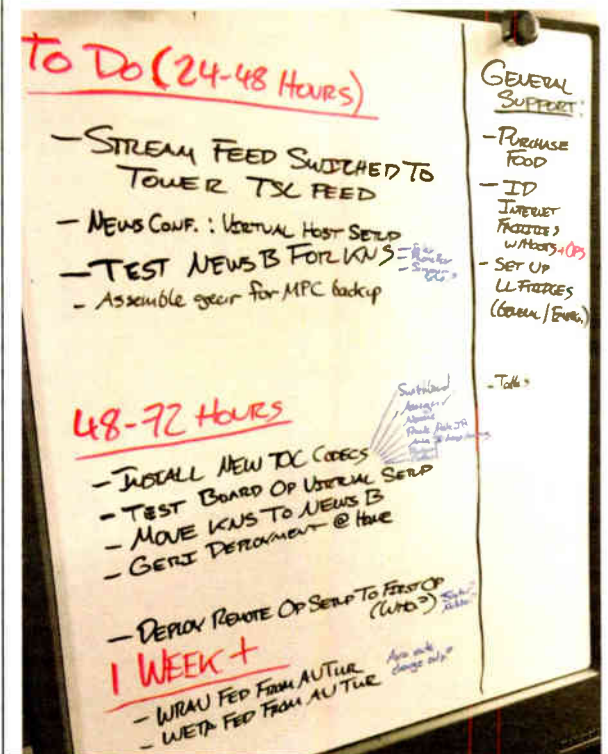 To Do (24-48 Hours)
- Stream Feed Switched To
Tower TSL Feed
- News Conf. : Virtual Host Setup
- Test News B For KNS
- Assemble gear for MPC backup
48-72 Hours
Switchboard
- Install New TOC Codecs
- Test Board Op Virtual Setup
- Move KNS To News B
- Geri Deployment @ Home
- Deploy Remote Op Setup To First Op
(Who?)
1 Week +
- WRAU Fed From AU Tur
- WETA Fed From AU Tur
General
Support:
- Purchase
Food
- ID
Internet
Facilities
w/Hosts + OPS
- Set Up
LL Fridges
(General / Emerg.)